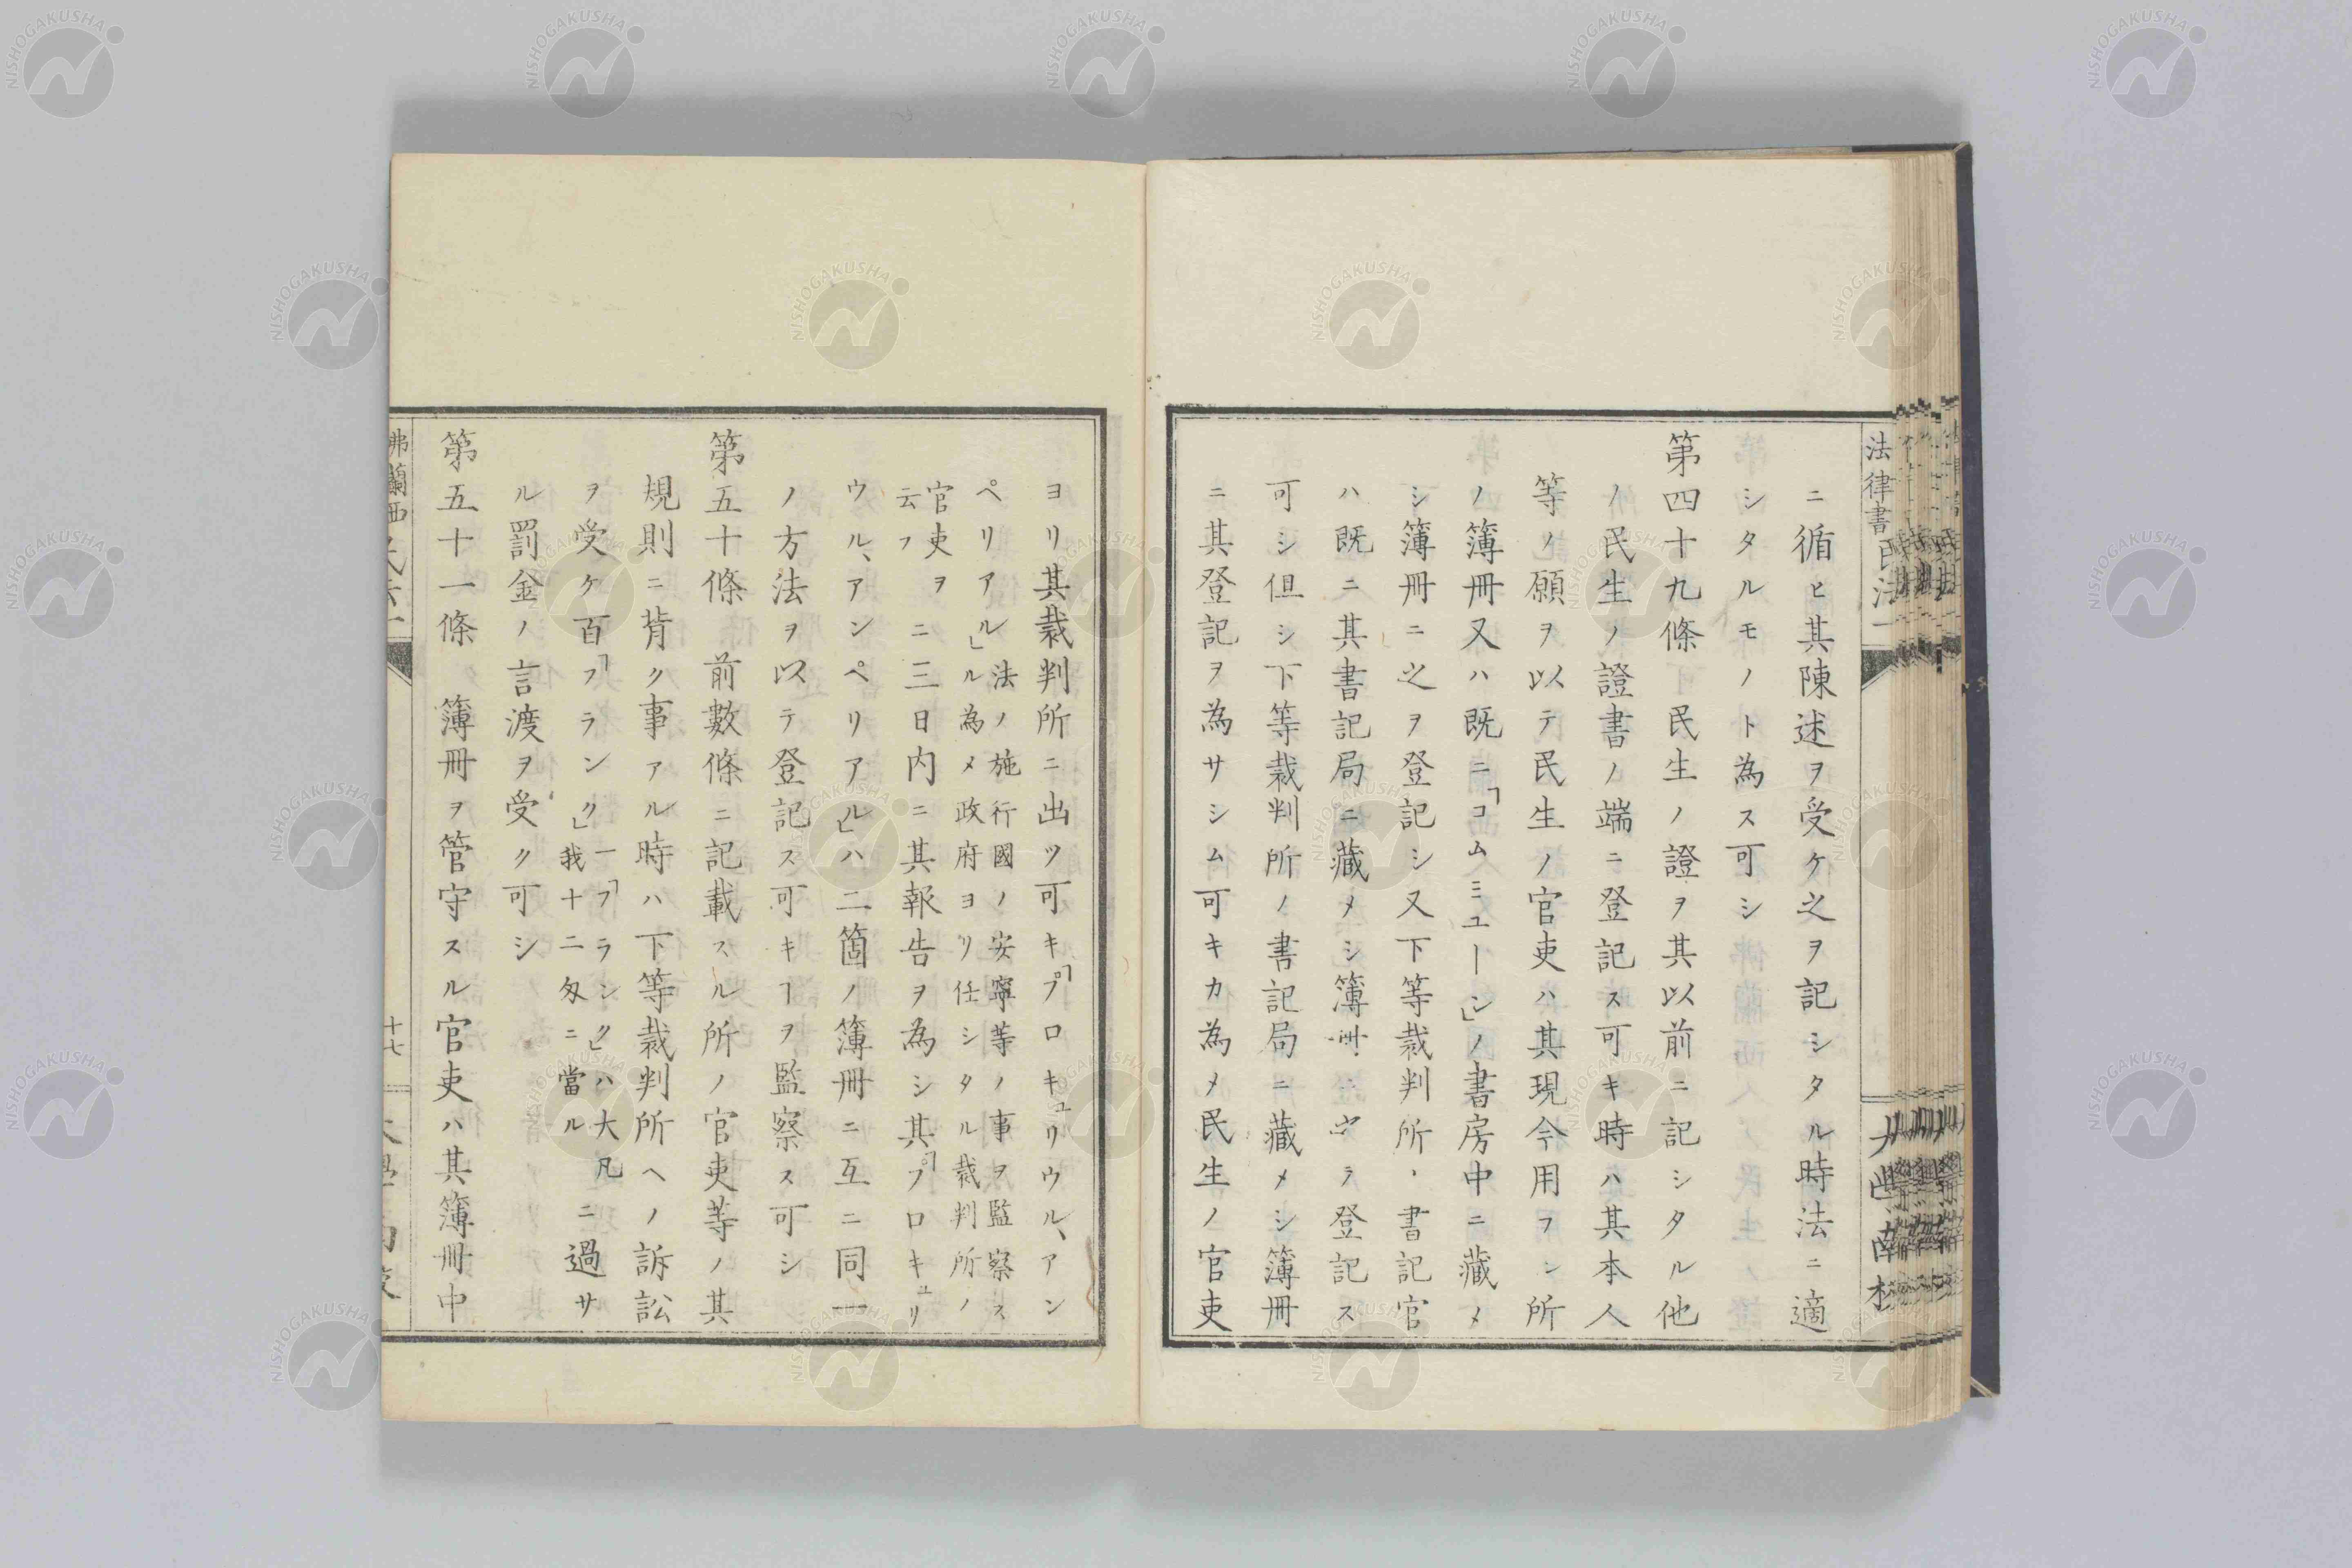 ニ循ヒ其陳述ヲ受ケ之ヲ記シタル時法ニ適
シタルモノト為ス可シ
第四十九條民生ノ證ヲ其以前ニ記シタル他
ノ民生ノ證書ノ端ニ登記ス可キ時ハ其本人
等ノ願ヲ以テ民生ノ官吏ハ其現今用フル所
ノ簿冊又ハ既ニ「コムミユーン」ノ書房中ニ藏メ
シ簿冊ニ之ヲ登記シ又下等裁判所ノ書記官
ハ既ニ其書記局ニ藏メシ簿冊ニ登記ス
可シ但シ下等裁判所ノ書記局ニ藏メシ簿冊
ニ其登記ヲ為サシム可キカ為メ民生ノ官吏
ヨリ其裁判所ニ出ツ可キ「プロキュリウル、アン
ペリアル」
法ノ施行國ノ安寧等ノ事ヲ監察ス
ル為メ政府ヨリ任シタル裁判所ノ
官吏ヲ
云フ
ニ三日内ニ其報告ヲ為シ其「プロキュリ
ウル、アンペリアル」ハ二箇ノ簿冊ニ互ニ同一
ノ方法ヲ以テ登記ス可キヿヲ監察ス可シ
第五十條 前數條ニ記載スル所ノ官吏等ノ其
規則ニ背ク事アル時ハ下等裁判所ヘノ訴訟
ヲ受ケ百「フランク」
一「フランク」ハ大凡
我十二匁ニ當ル
ニ過サ
ル罰金ノ言渡ヲ受ク可シ
第五十一條 簿冊ヲ管守スル官吏ハ其簿冊中
法律書
民法一
弗蘭西
十七
NISHOGAKUSHA